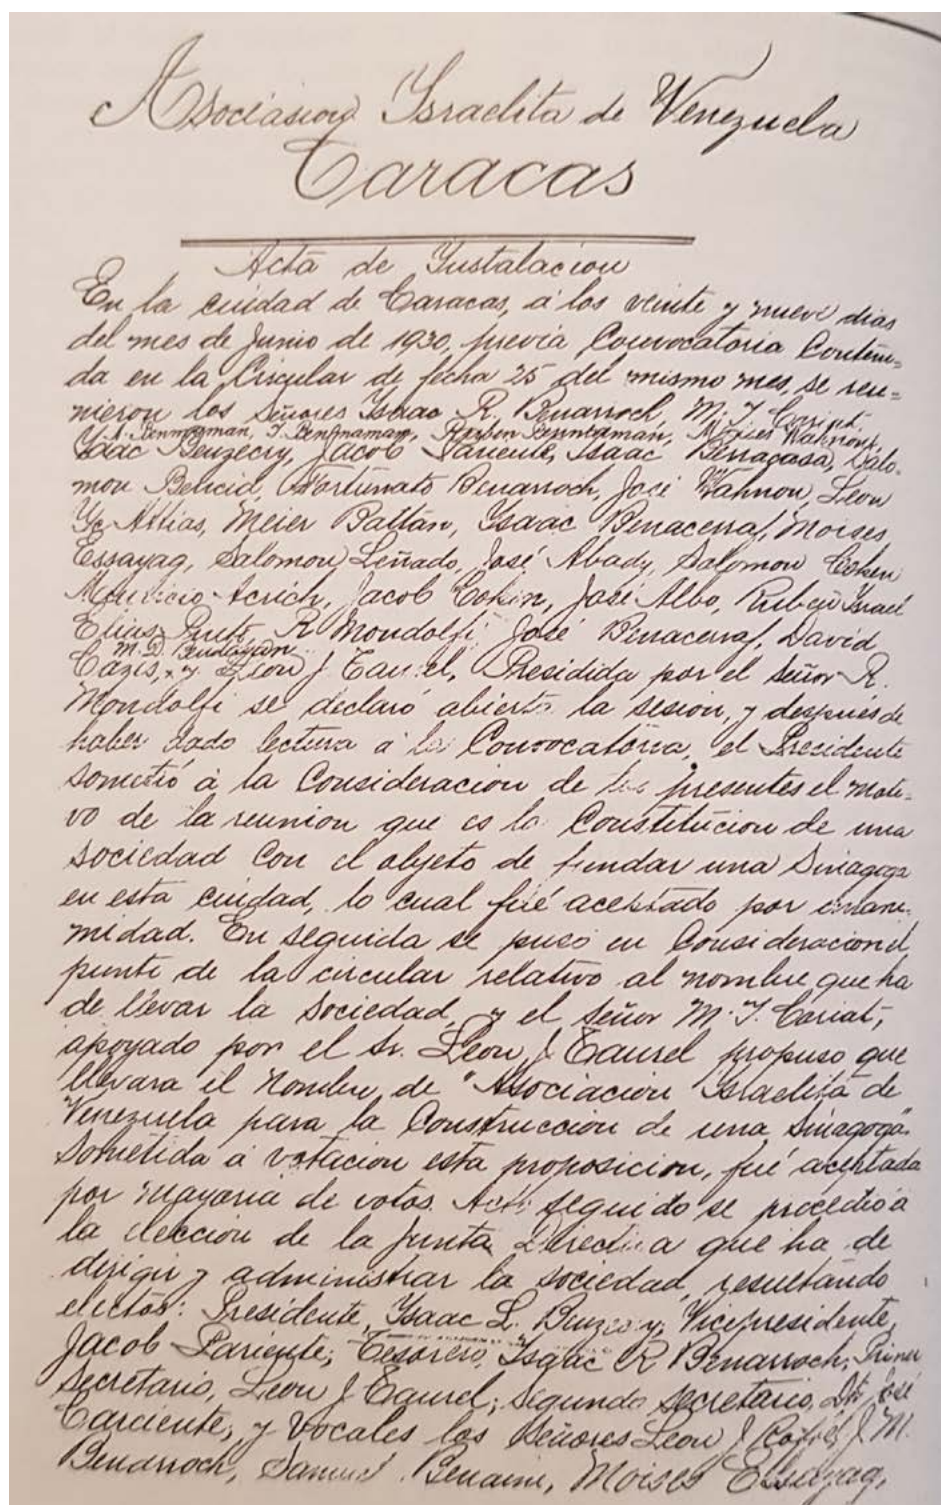 Asociacion Israelita de Venezuela
Caracas
Acta de Instalacion
En la cuidad de Caracas, á los veinte y nueve dias
del mes de Junio de 1930, previa Convocatoria Conteni-
da en la Circular de fecha 25 del mismo mes, se reu-
nieron los Señores Isaac R. Benarroch, M. J. Cariat,
Ruben Moises Wahnon,
Isaac Benzecry, Jacob Pariente, Isaac Salo-
mon Belicid, Fortunato Benarroch, José Wahnon, Leon
Attias, Meier Battan, Isaac Benacerraf, Moises
Essayag, Salomon Leñado, José Abady, Salomon Cohen
Mauricio Acrich, Jacob Cohen, José Albo, Ruben Israel
Elias R Mondolfi José Benacerraf, David
M. D. Bendayan
Cazes, y Leon J Taurel. Presidida por el señor R.
Mondolfi se declaró abierta la sesion, y después de
haber dado lectura á la Convocatoria, el Presidente
sometió á la Consideracion de los presentes el moti-
vo de la reunion que es la Constitucion de una
sociedad Con el objeto de fundar una Sinagoga
en esta cuidad, lo cual fué aceptado por unani-
midad. En seguida se puso en Consideracion el
punto de la circular relativo al nombre que ha
de llevar la Sociedad, y el señor M. J. Cariat,
apoyado por el Sr. Leon J. Taurel propuso que
llevara el nombre de "Asociacion Israelita de
Venezuela para la Construccion de una Sinagoga"
Sometida á votacion esta proposicion, fué aceptada
por mayoria de votos. Acto seguido se procedió á
la eleccion de la Junta Directiva que ha de
dirigir y administrar la sociedad, resultando
electos: Presidente, Isaac L. Benzecry, Vicepresidente,
Jacob Pariente; Tesorero, Isaac R Benarroch; Primer
Secretario, Leon J Taurel; Segundo Secretario, Dr. José
Carciente; y Vocales los Señores Leon J. J. M.
Benarroch, Samuel Benaim, Moises Essayag,